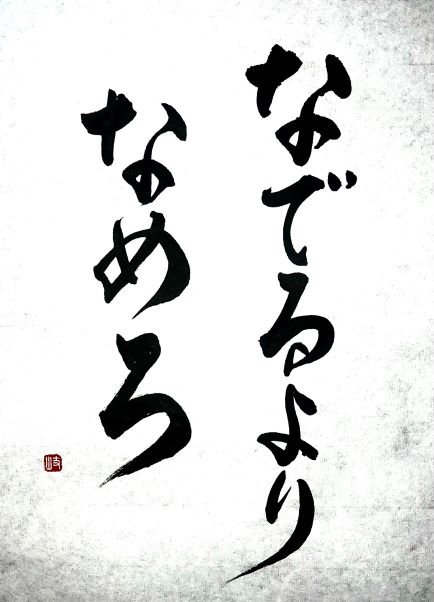 なでるより
なめろ